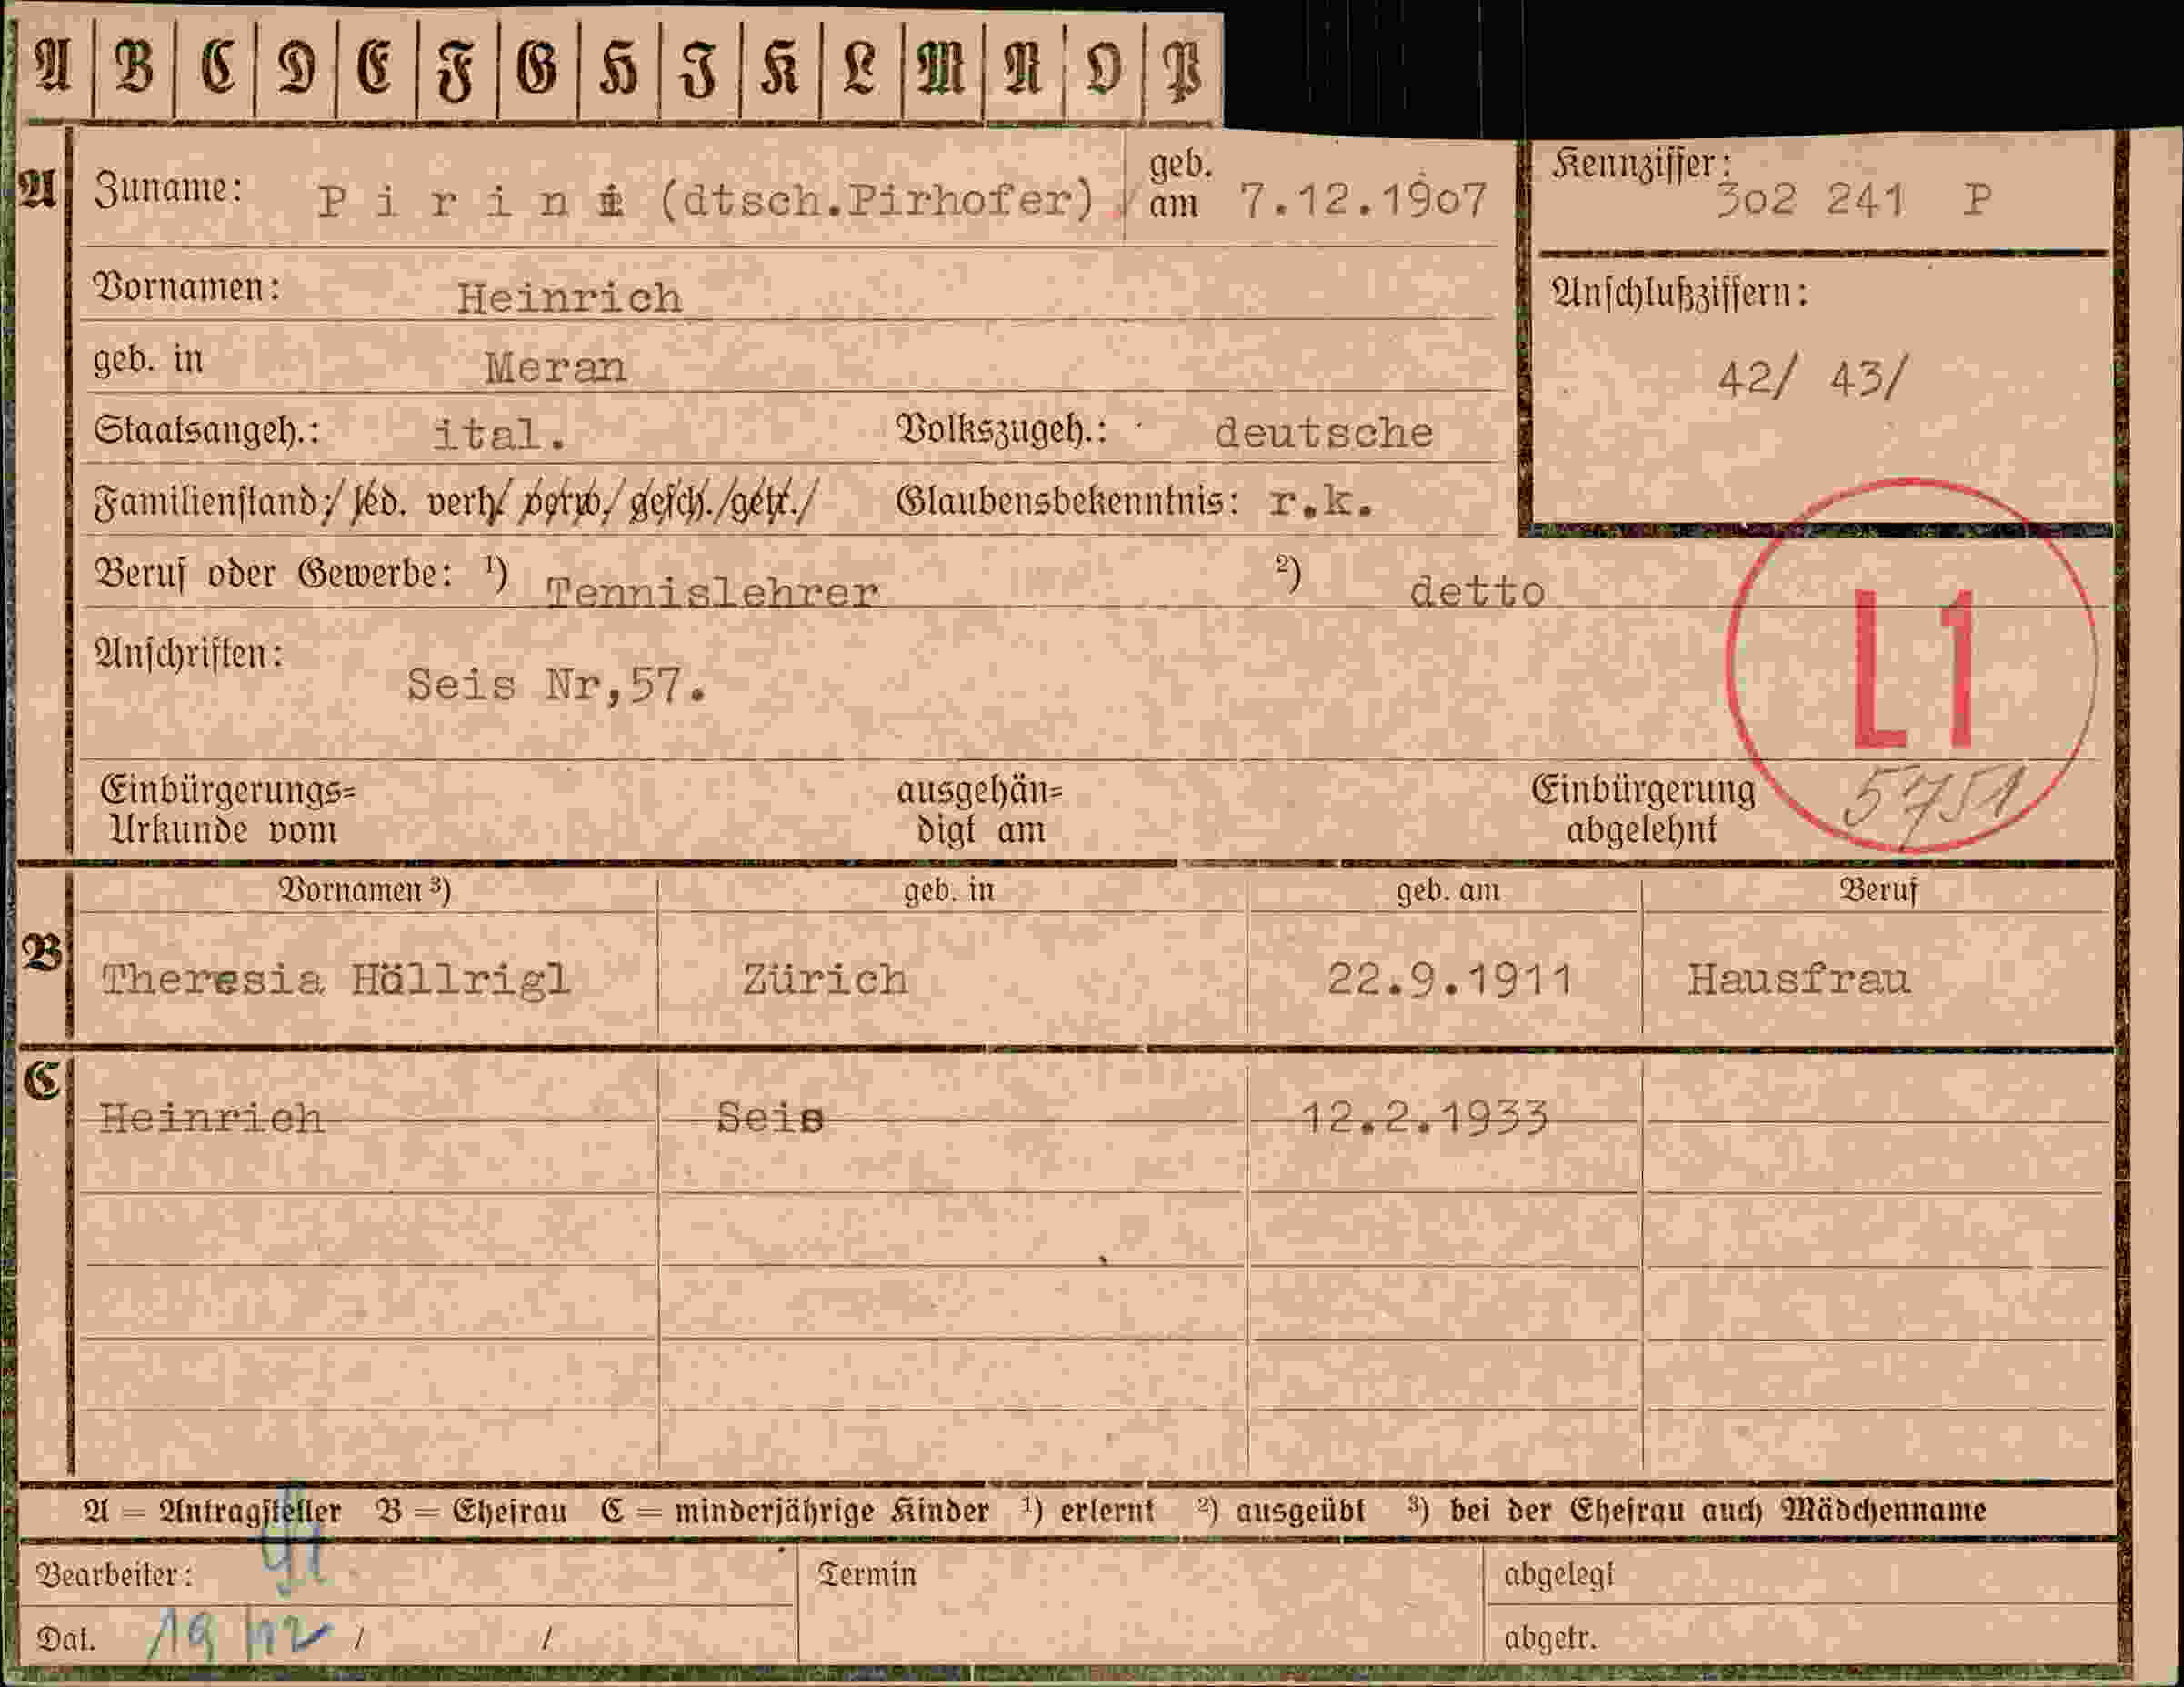 A B C D E F G H J K L M N O P
A Zuname: Pirini (dtsch.Pirhofer) geb. am 7.12.19o7
Kennziffer: 3o2 241 P
Vornamen: Heinrich
Anschlußziffern:
geb. in Meran
42/ 43/
Staatsangeh.: ital. Volkszugeh.: deutsche
Familienstand:/ led. verh/ verw./ gesch./getr./ Glaubensbekenntnis: r.k.
Beruf oder Gewerbe: 1) Tennislehrer 2) detto
L1
Anschriften: Seis Nr,57.
Einbürgerungs= ausgehän= Einbürgerung 5751
Urkunde vom digt am abgelehnt
Vornamen 3) geb. in geb. am Beruf
B Theresia Hällrigl Zürich 22.9.1911 Hausfrau
C Heinrich Seis 12.2.1933
A = Antragsteller B = Ehefrau C = minderjährige Kinder 1) erlernt 2) ausgeübt 3) bei der Ehefrau auch Mädchenname
Bearbeiter: Termin abgelegt
Dat. 19/12 / / abgetr.